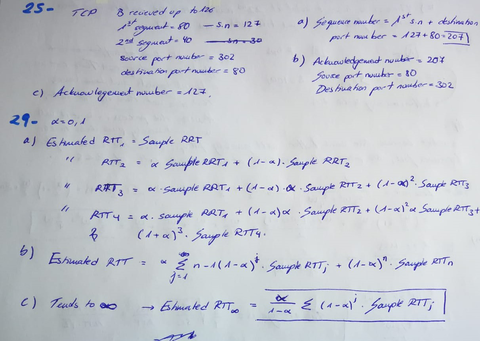 25- TCP B recieved up to 126
1st segment = 80 — s.n = 127
2nd segment = 40
source port number = 302
destination port number = 80
a) Sequence number = 1st s.n + destination
port number = 127+80=207
b) Acknowledgement number = 207
Source port number = 80
Destination port number = 302
c) Acknowlegement number = 127.
29- α=0,1
a) Estimated RTT1 = Sample RRT
" RTT2 = α Sample RRT1 + (1-α). Sample RRT2
" RTT3 = α. Sample RRT1 + (1-α) α. Sample RTT2 + (1-α)². Sample RTT3
" RTT4 = α. sample RRT1 + (1-α)α. Sample RTT2 + (1-α)²α Sample RTT3+
(1+α)³. Sample RTT4.
b) Estimated RTT = α ∞∑j=1 n-1(1-α)^j. Sample RTTj + (1-α)^n. Sample RTTn
c) Tends to ∞ → Estimated RTT∞ = α/1-α ∑ (1-α)^j. Sample RTTj